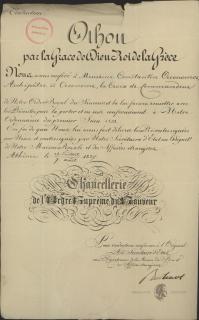 Traduction
Othon
par la Grâce de Dieu Roi de la Grèce
Nous avons conféré à Monsieur Constantin Oeconomos
Archiprêtre et Oeconome, la Croix de Commandeur
de Notre Ordre Royal du Sauveur et lui ferons remettre avec
les Privilèges, la porter et conformément à Notre
Ordonnance du premier Juin 1833
En foi de quoi Nous lui avons fait délivrer les Présentes signées
par Nous et contresignées par Notre Secrétaire d'Etat au Départ
de Notre Maison Royale et des Affaires étrangères
Athènes
Chancellerie
de l'Ordre Suprême du Sauveur
Pour traduction conforme à l'Original
Le Secrétaire d'Etat